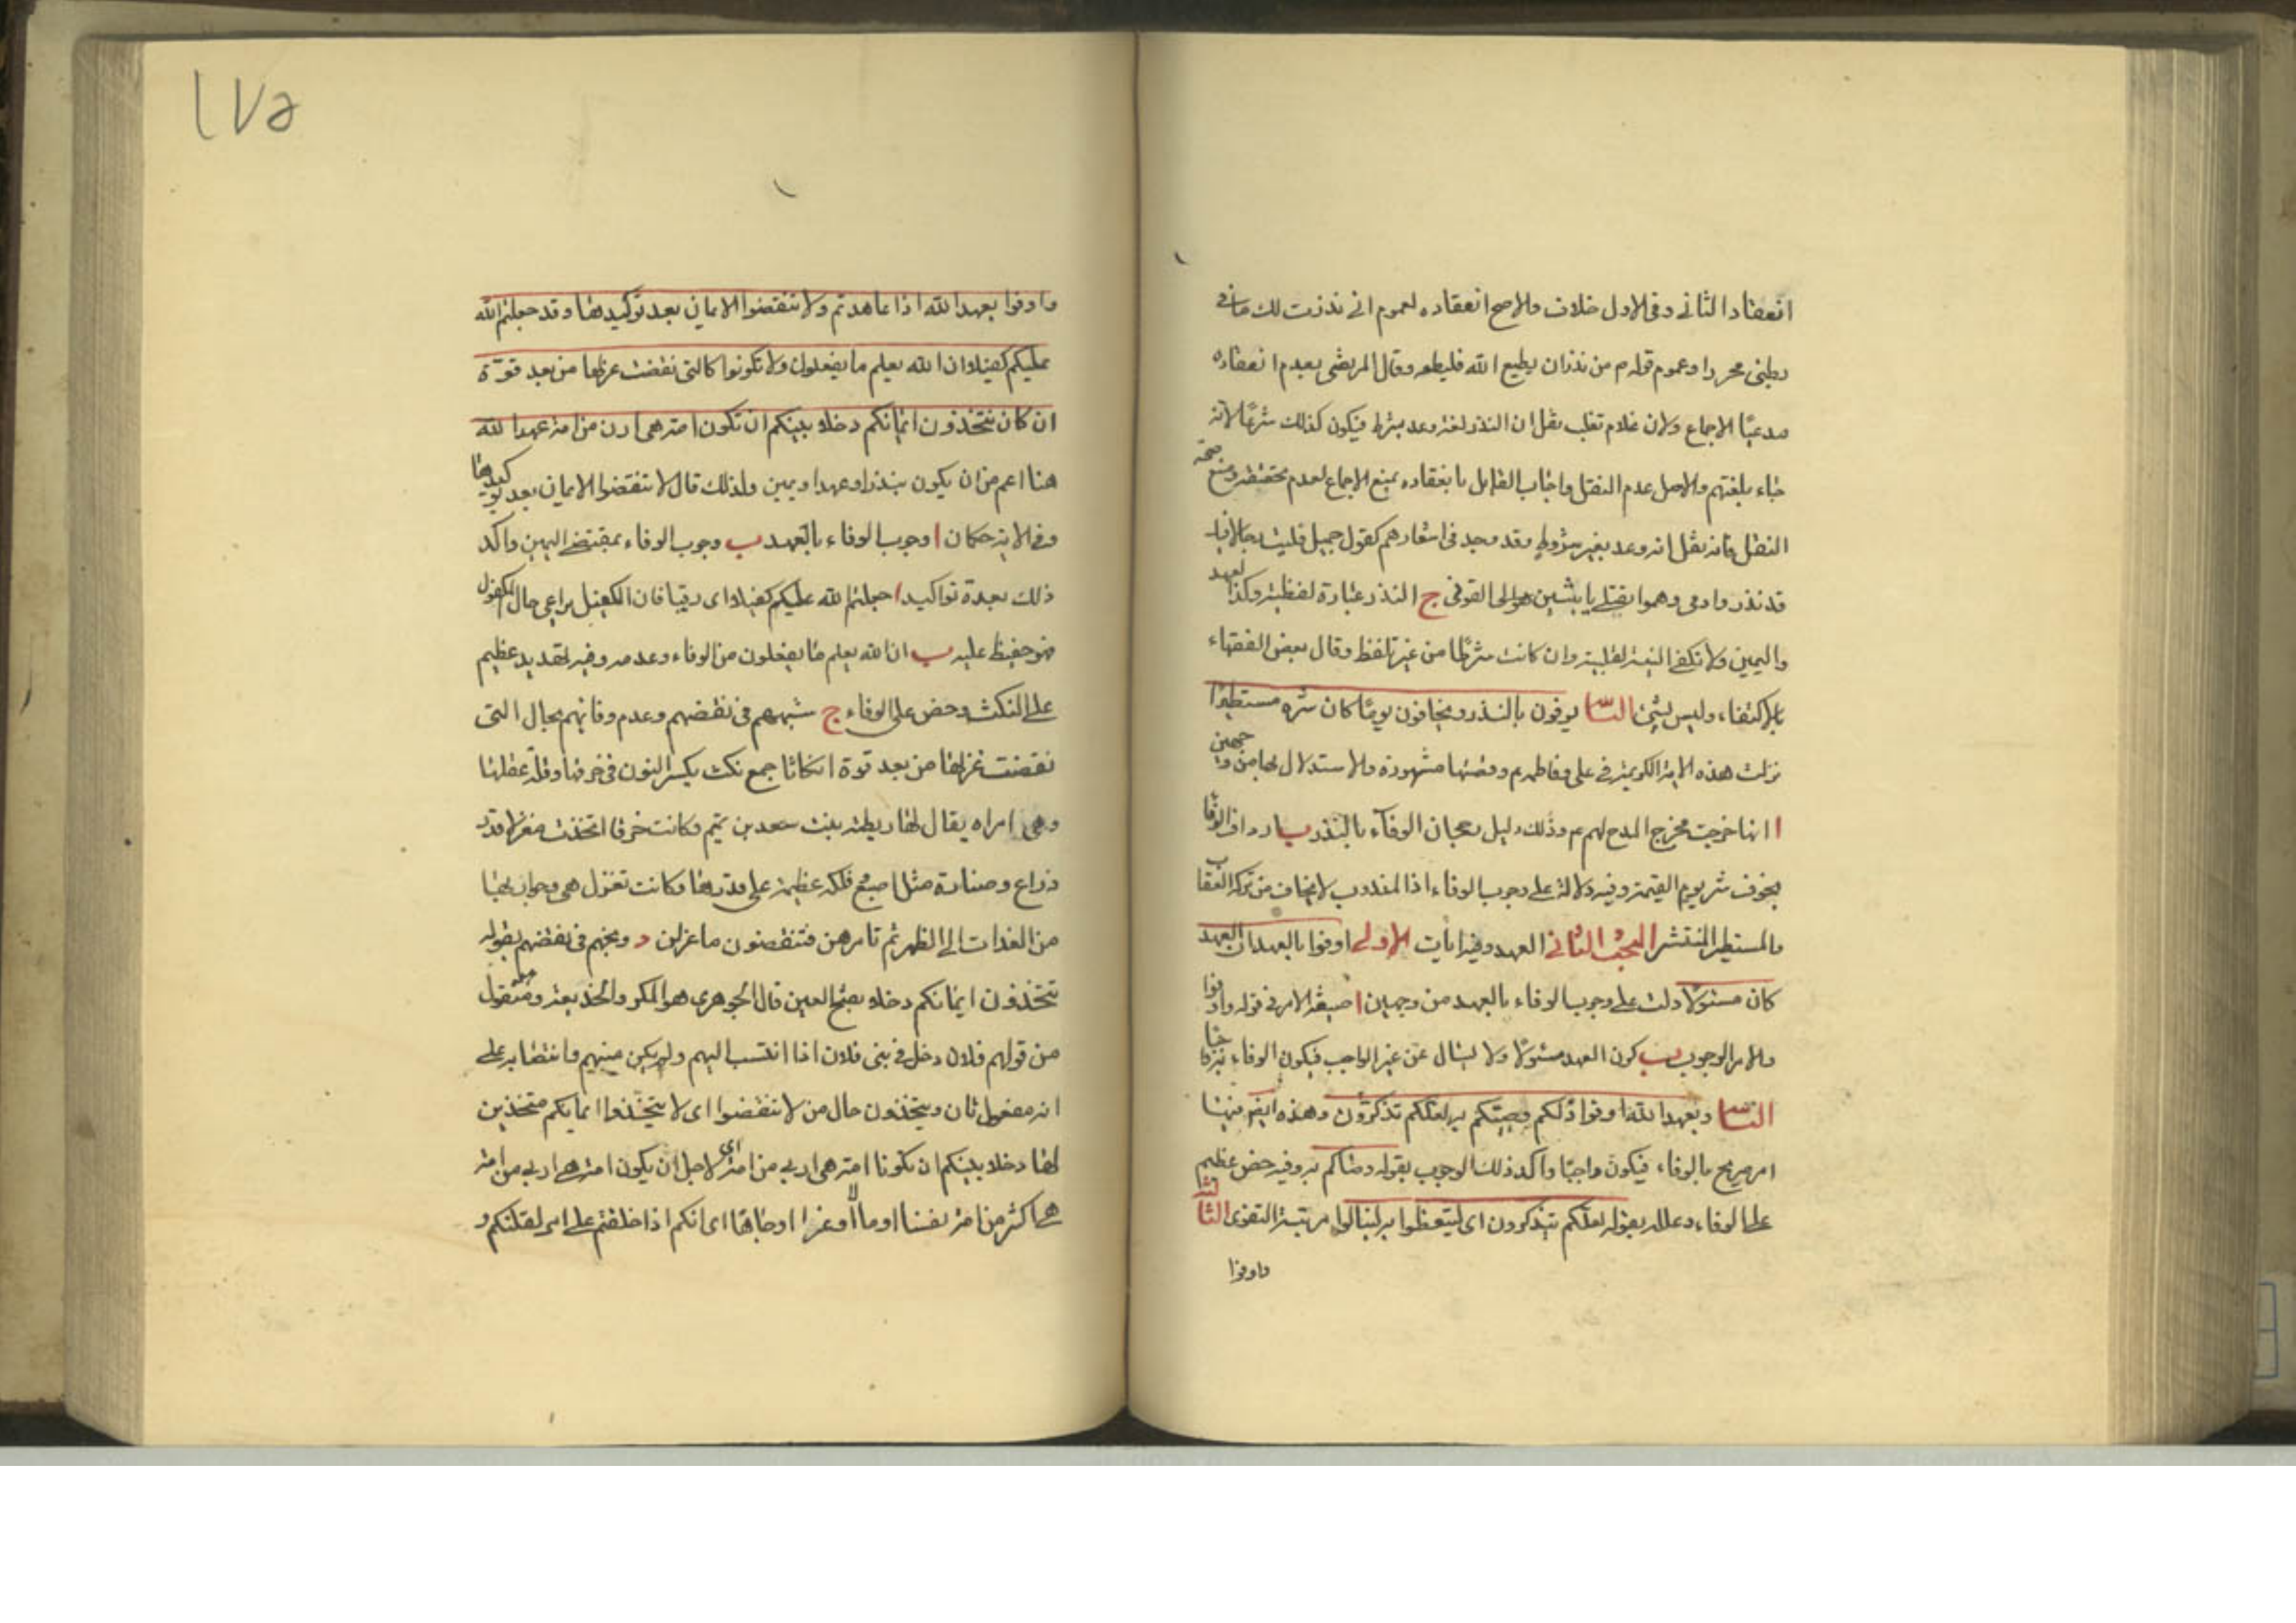 انعقاد الثاني وفي الاول خلاف والاصح انعقاده لعموم اني نذرت لك ما في
بطني محررا وعموم قوله م من نذر ان يطيع الله فليطعه وقال المرتضى بعدم انعقاده
مدعيًا الاجماع ولان غلام ثعلب نقل ان النذر لغة وعد بشرط فيكون كذلك شرعًا لانه
جاء بلغتهم والاصل عدم النقل واجاب القايل بانعقاده بمنع الاجماع لعدم تحققه ومنع صحة
النقل فانه نقل انه وعد بغير شرط وقد وجد في اشعارهم كقول جميل فليت رجالا فيك
قد نذروا دمي وهموا بقتلي يا بثين لقوني ج النذر عبارة لفظية وكذا العهد
واليمين ولا تكفي النية القلبية وان كانت شرطًا من غير تلفظ وقال بعض الفقهاء
بالاكتفاء وليس بشئ الثانية يوفون بالنذر ويخافون يومًا كان شره مستطيرا
نزلت هذه الاية الكريمة في علي وفاطمة م وقصتها مشهورة والاستدلال بها من وجهين
ا انها خرجت مخرج المدح لهم م وذلك دليل رجحان الوفاء بالنذر ب اردف الوفا
بخوف شر يوم القيمة وفيه دلالة على وجوب الوفاء اذ المندوب لا يخاف من تركه العقاب
والمستطير المنتشر البحث الثاني العهد وفيه ايات الاولى اوفوا بالعهد ان العهد
كان مسئولًا دلت على وجوب الوفاء بالعهد من وجهين ا صيغة الامر في قوله واوفوا
والامر للوجوب ب كون العهد مسئولًا ولا يسال عن غير الواجب فيكون الوفاء به واجبا
الثانية وبعهد الله اوفوا ذلكم وصيكم به لعلكم تذكرون وهذه ايضا فيها
امر صريح بالوفاء فيكون واجبًا واكد ذلك الوجوب بقوله وصاكم به وفيه حض عظيم
على الوفاء وعلله بقوله لعلكم تتذكرون اى ليتعظوا به لينالوا مرتبة التقوى الثالثة
واوفوا
١٧٥
واوفوا بعهد الله اذا عاهدتم ولا تنقضوا الايمان بعد توكيدها وقد جعلتم الله
عليكم كفيلا ان الله يعلم ما يفعلون ولا تكونوا كالتى نقضت غزلها من بعد قوة
ان كان تتخذون ايمانكم دخلا بينكم ان تكون امة هى اربى من امة عهد الله
هنا اعم من ان يكون بنذر او عهد او يمين ولذلك قال لا تنقضوا الايمان بعد توكيدها
وفي الاية حكمان ا وجوب الوفاء بالعهد ب وجوب الوفاء بمقتضى اليمين واكد
ذلك بعدة تواكيد ا جعلتم الله عليكم كفيلا اى رقيبا فان الكفيل يراعى حال المكفول
فهو حفيظ عليه ب ان الله يعلم ما يفعلون من الوفاء وعدمه وفيه تهديد عظيم
على النكث وحض على الوفاء ج شبههم في نقضهم وعدم وفائهم بحال التى
نقضت غزلها من بعد قوة انكاثا جمع نكث بكسر النون في خرقها وقلة عقلها
وهى امراه يقال لها ريطة بنت سعد بن تيم وكانت خرقا اتخذت مغزلا قدر
ذراع وصنارة مثل اصبع وفلكه عظيمة على قدرها وكانت تغزل هى وجواريها
من الغدات الى الظهر ثم تامرهن فتنقضون ما غزلن د وبخهم في نقضهم بقوله
تتخذون ايمانكم دخلا بفتح العين قال الجوهرى هو المكر والخديعة وهو منقول
من قولهم فلان دخل في بنى فلان اذا انتسب اليهم ولم يكن منهم وانتصابه على
انه مفعول ثان ويتخذون حال من لا تنقضوا اى لا يتخذوا ايمانكم متخذين
لها دخلا بينكم ان تكونا امة هى اربى من امة اى لاجل ان يكون امة هى اربى من امة
هى اكثر من امة نفسا او مالًا او عزا او جاها اى انكم اذا حلفتم على امر لعلكم و